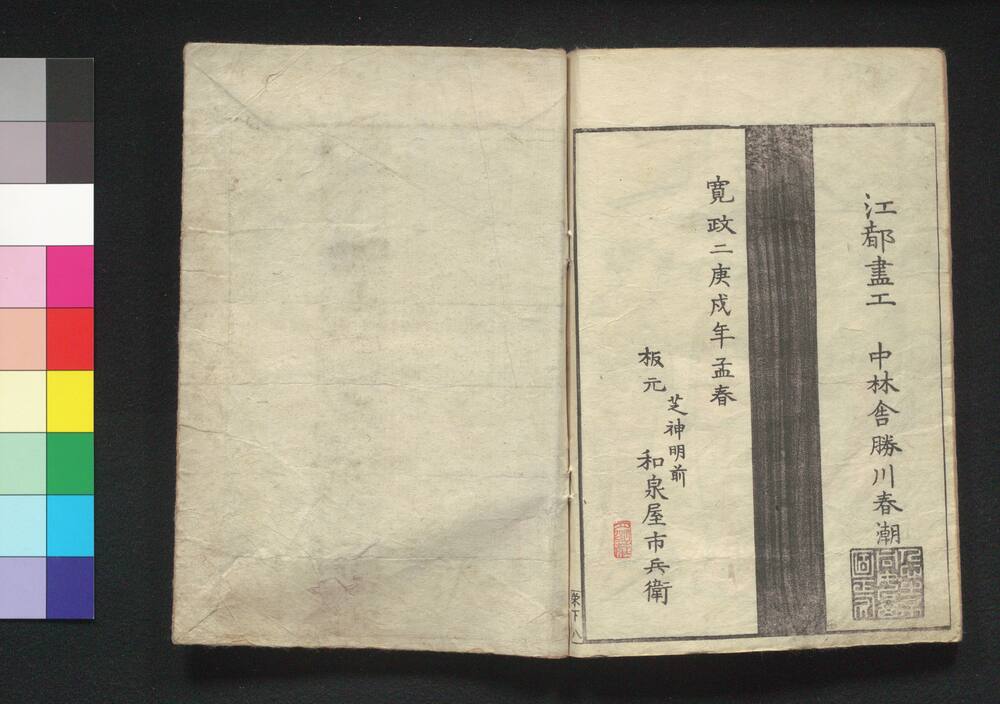 江都畫工　中林舎勝川春潮
寛政二庚戌年孟春
板元
芝神明前
和泉屋市兵衛